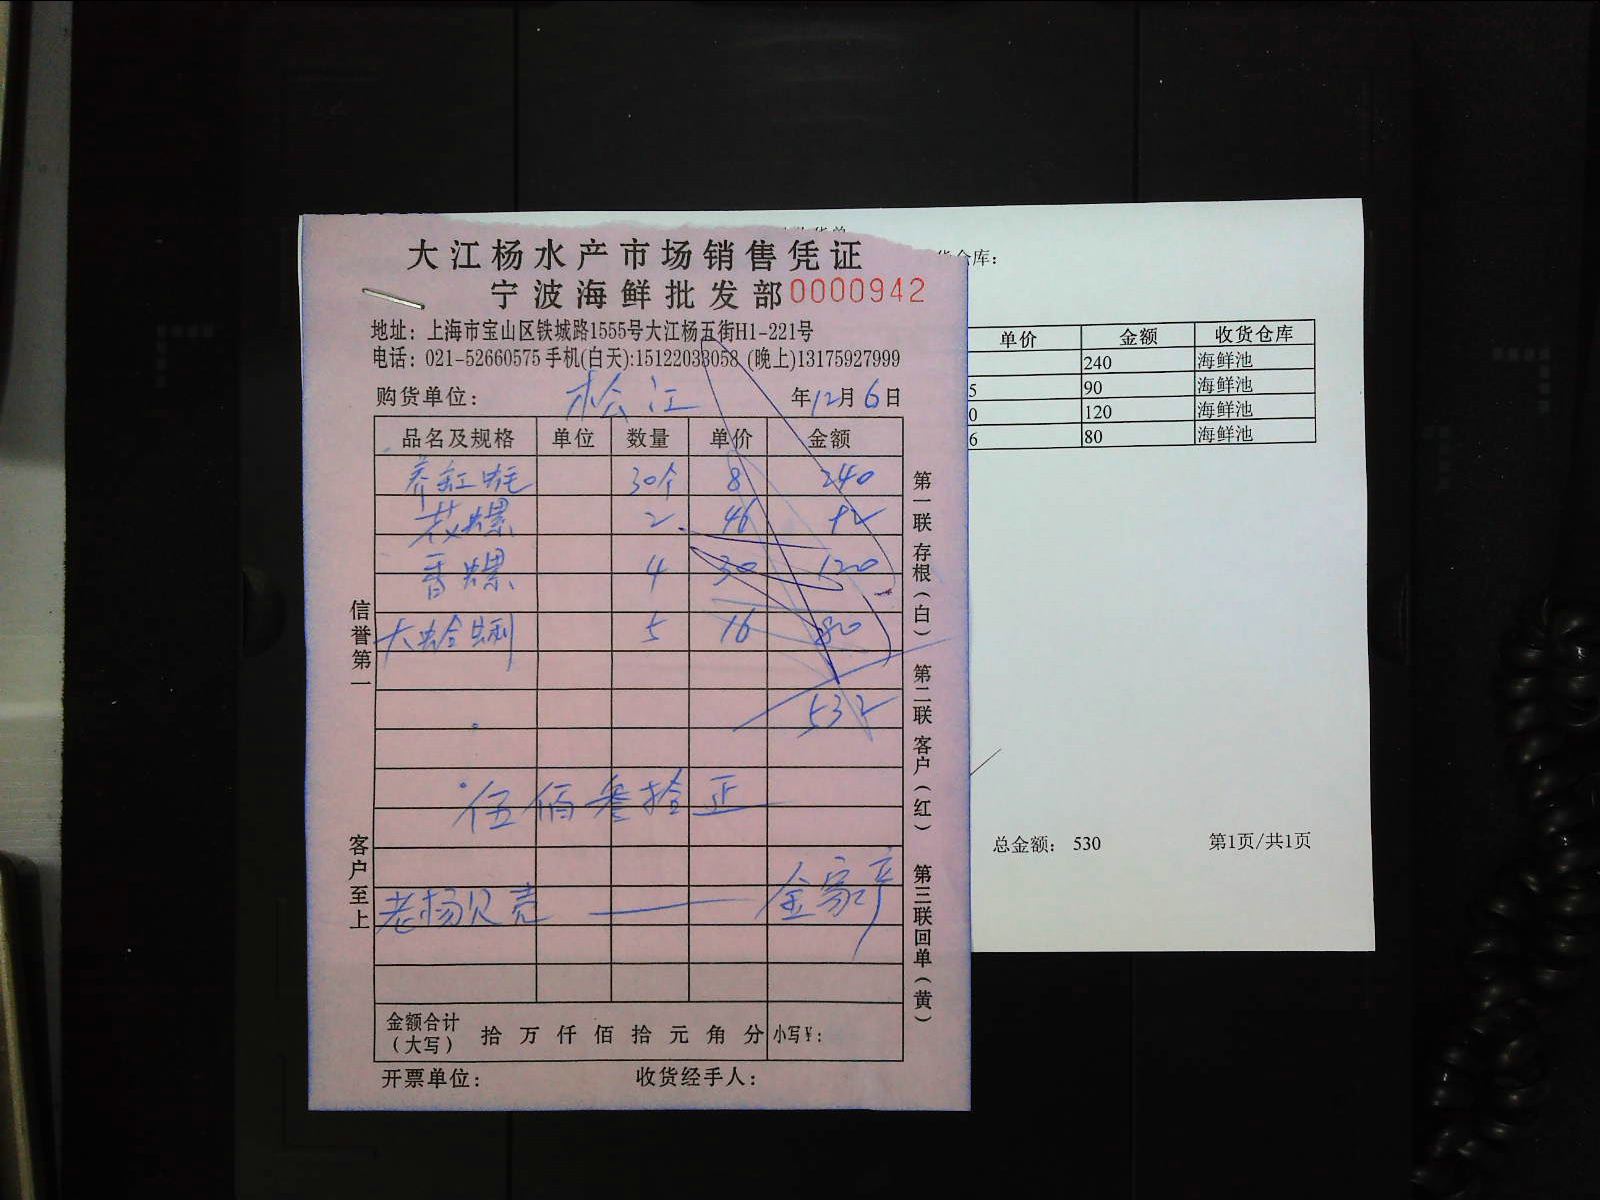 大江杨水产市场销售凭证
宁波海鲜批发部 0000942
地址：上海市宝山区铁城路1555号大江杨五街H1-221号
电话：021-52660575 手机(白天):15122033058 (晚上)13175927999
购货单位： 松江 年12月6日
品名及规格 单位 数量 单价 金额
养缸蚝 30个 8 240
花螺 2 46 92
香螺 4 30 120
大蛤蜊 5 16 80
532
伍佰叁拾正
老杨贝壳 — 金家产
金额合计（大写） 拾 万 仟 佰 拾 元 角 分 小写¥：
开票单位： 收货经手人：
信誉第一
客户至上
第一联存根（白）
第二联客户（红）
第三联回单（黄）
仓库：
单价 金额 收货仓库
240 海鲜池
5 90 海鲜池
0 120 海鲜池
6 80 海鲜池
总金额： 530 第1页/共1页